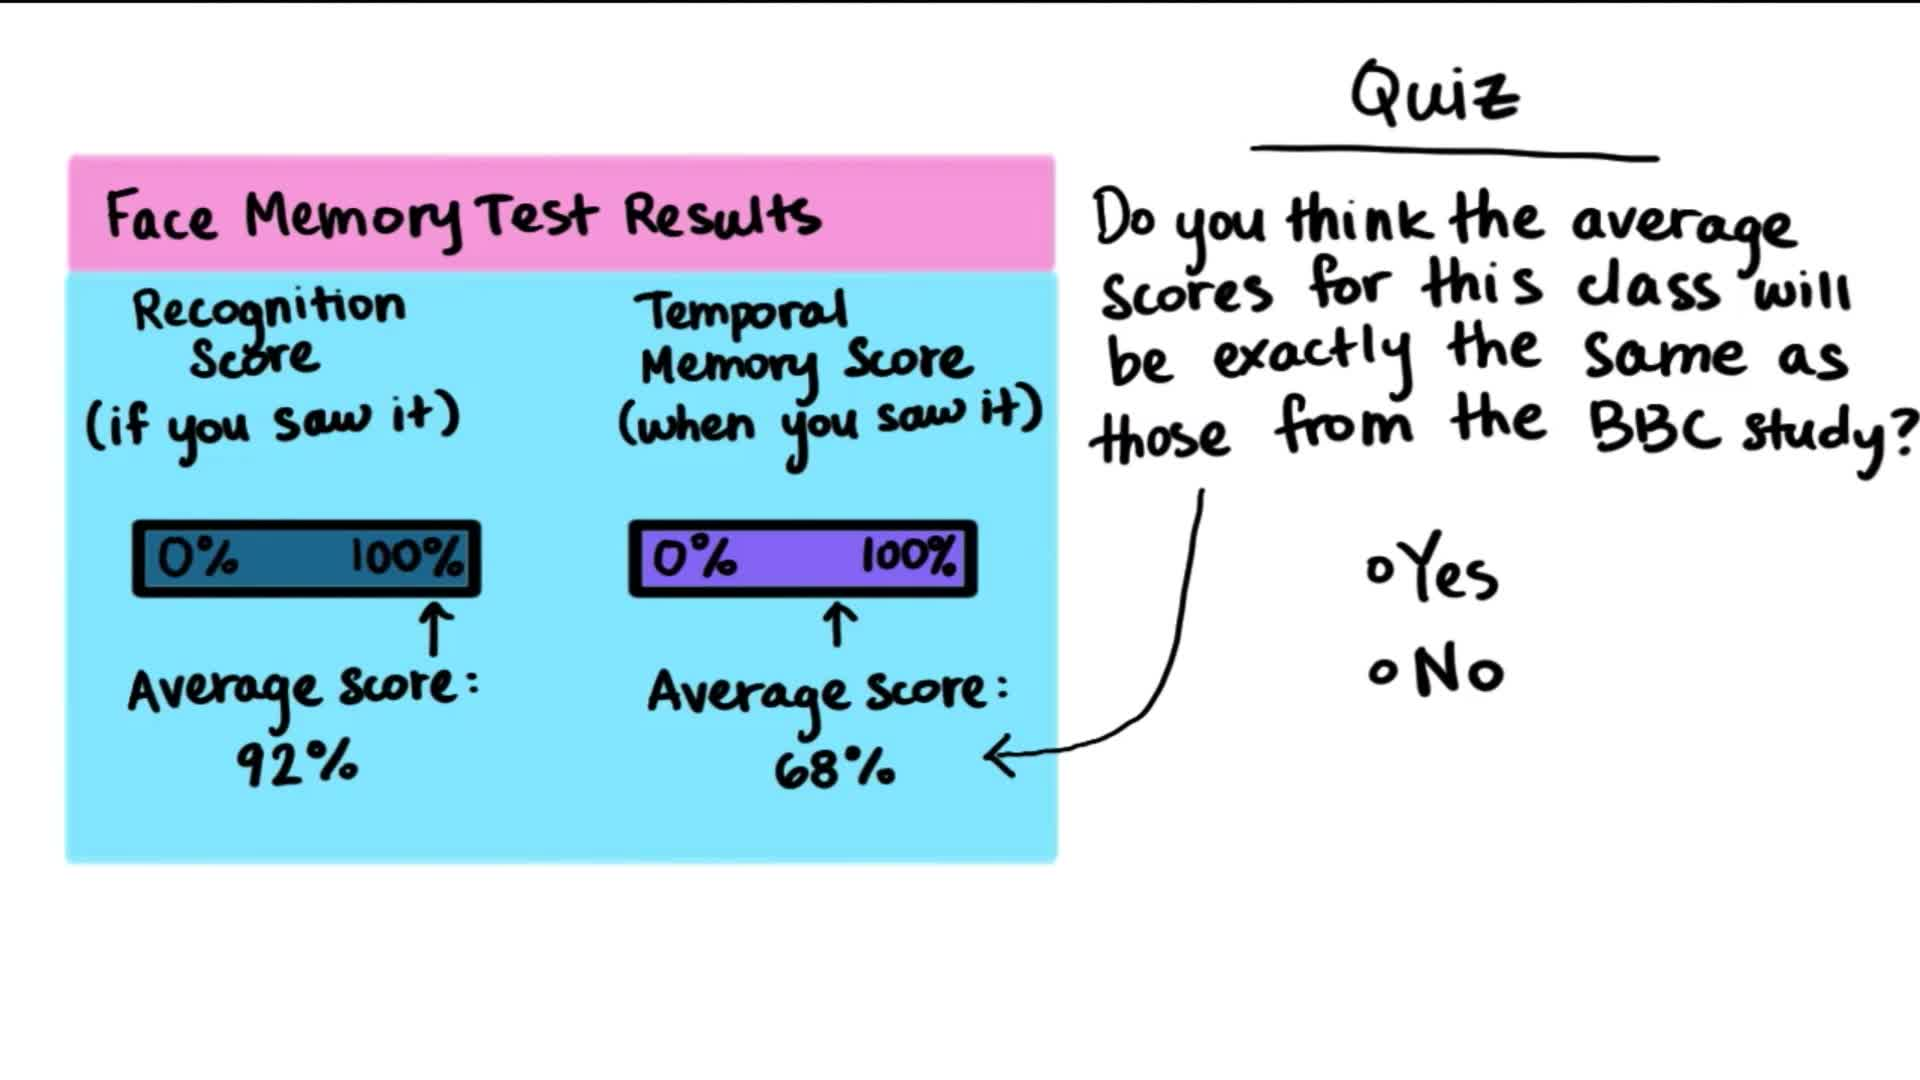 Face Memory Test Results
Recognition
Score
(if you saw it)
0% 100%
Average score:
92%
Temporal
Memory Score
(when you saw it)
0% 100%
Average score:
68%
Quiz
Do you think the average
scores for this class will
be exactly the same as
those from the BBC study?
Yes
No